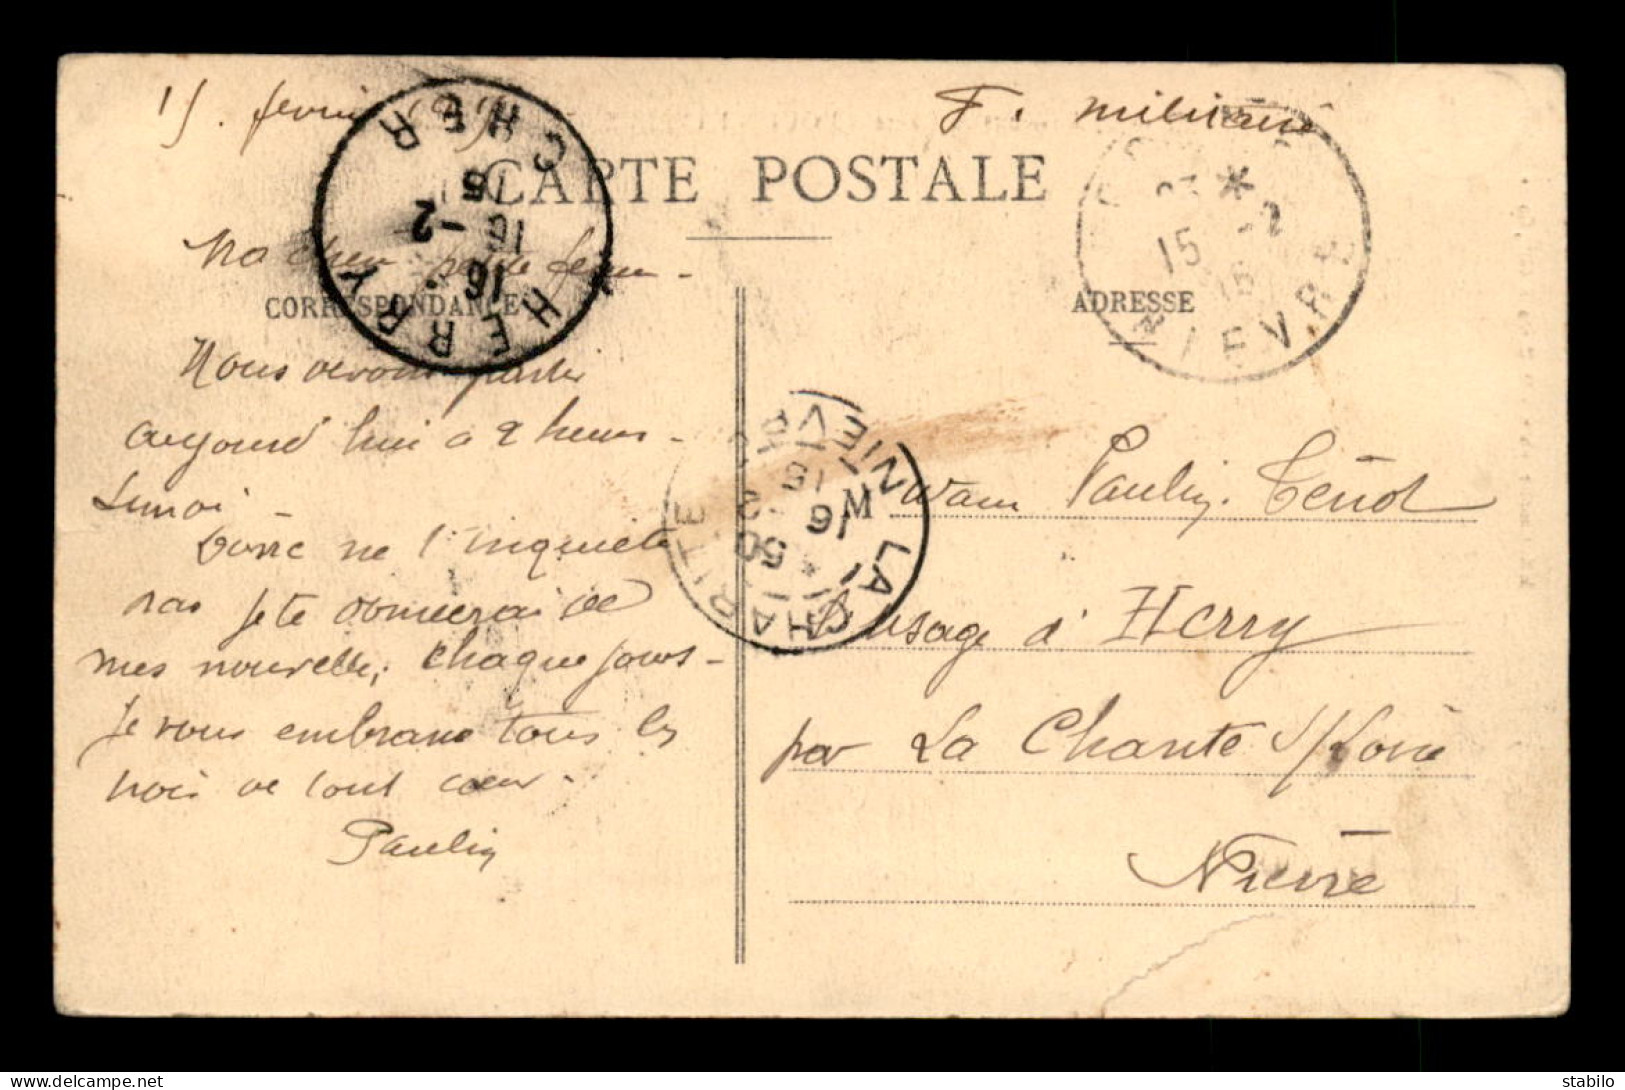 15. fevrier 1915
F. militaire
CARTE POSTALE
CORRESPONDANCE
ADRESSE
HERRY CHER
16 -2
15
NIEVRE
15 -2
15
LA CHARITE NIEVRE
16 -2
15
Ma chere petite femme -
Nous devons partir
aujourd'hui a 2 heures
Donc ne t'inquiete
pas je te donnerai de
mes nouvelles, chaque jours -
Je vous embrasse tous les
trois de tout cœur -
Paulin
Madam Paulin Ténot
Ausage d' Herry
par La Charité s/Loire
Nièvre
stabilo